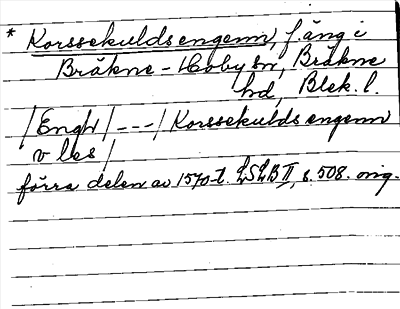 * Korssekuldsengenn, f. äng i
Bräkne-Hoby sn, Bräkne
hd, Blek. l.
/Engh/ --- / Korssekuldsengenn
v les /
förra delen av 1570-t. LSLB II, s. 508. orig.